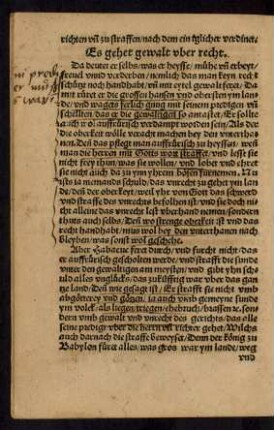 richten vñ zu straffen/ nach dem ein yglicher verdinet.
Es gehet gewalt vber recht.
Da deutet er selbs/ was er heysse/ mühe vñ erbeyt/
freuel vnnd verderben/ nemlich das man keyn recht
schütze noch handhabe/ vñ mit eytel gewalt fere/ Da
mit rüret er die grossen hansen vnd obersten ym lan-
de/ vnd wagets ferlich gnug mit seinem predigen vñ
schellten/ das er die gewalltigen so antastet/ Er sollte
auch wol auffrürisch verdampt worden sein/ Als der
die oberkeit wölle veracht machen bey den vnterthan-
nen/ Denn das pflegt man auffrürisch zu heyssen/ wenn
man die herren mit Gottis wort straffet/ vnd lesst sie
nicht frey thun was sie wollen/ vnd lobet vnd ehret
sie nicht auch da zu ynn yhrem bösen furnemen/ Nu
ists ia niemands schuld/ das vnrecht zu gehet ym lan-
de/ denn der oberkeyt/ weil yhr von Gott das schwerd
vnd straffe des vnrechts befolhen ist/ vnd sie doch ni-
cht alleine das vnrecht lest vberhand nemen/ sondern
thuts auch selbs/ Denn wo strenge oberkeit ist vnd das
recht handhabt/ mus wol bey den vnterthanen nach
bleyben/ was sonst wol geschehe.
Aber Habacuc feret durch/ vnd furcht nicht/ das
er auffrürisch gescholten werde/ vnd strafft die sunde
vnter den gewalltigen am meysten/ vnd gibt yhn sch-
uld alles vnglücks/ das zukünfftig war vber das gan-
tze land/ Denn wie gesagt ist/ Er strafft sie nicht vmb
abgötterey vnd götzen/ ia auch nicht vmb gemeyne sunde
ym volck/ als liegen/ triegen/ ehebruch/ hassen etc. son-
dern vmb gewalt vnd vnrecht des gerichts/ das alle
seine predigt vber die herrn vñ richter gehet/ Wilchs
auch darnach die straffe beweyset/ Denn der König zu
Babylon füret alles/ was gros war ym lande/ weg
vnd